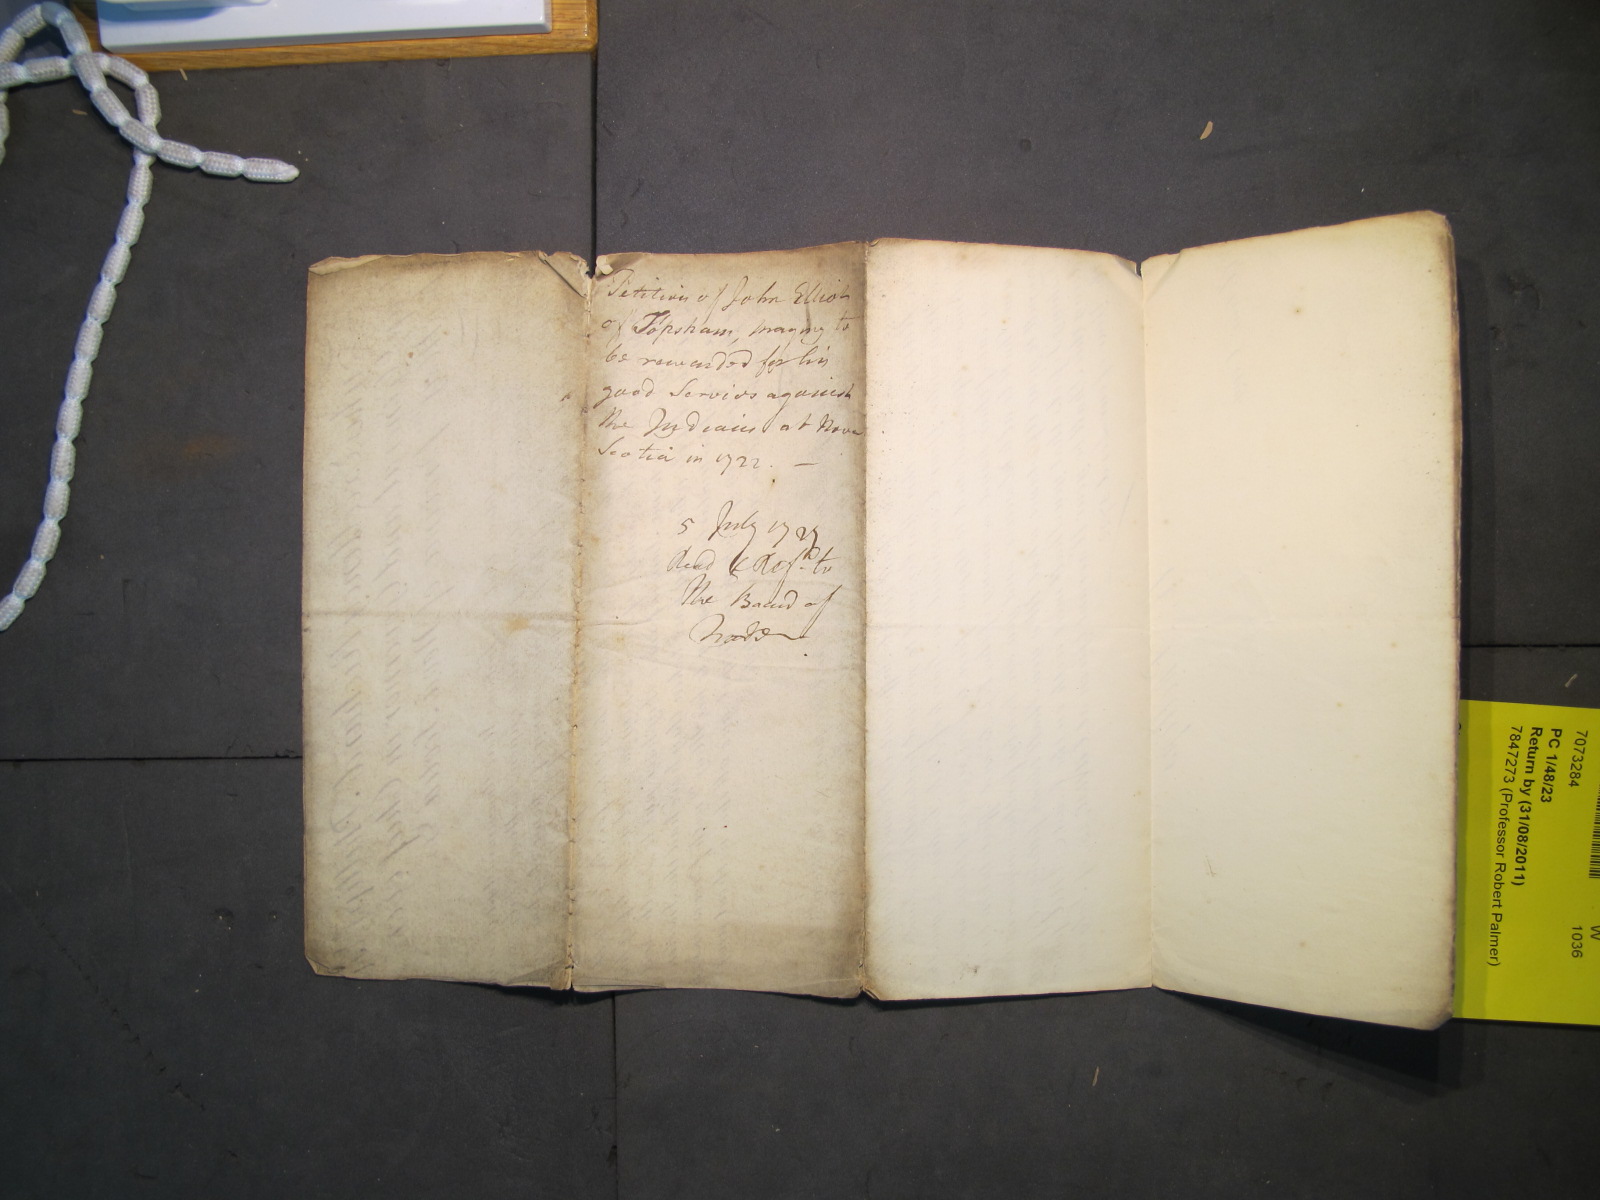 Petition of John Elliot
of Topsham, praying to
be rewarded for his
good Service against
the Indians at Nova
Scotia in 1722. —
5 July 1727
Read & Ref.d to
The Board of
Trade
7073284
PC 1/48/23
Return by (31/08/2011)
7847273 (Professor Robert Palmer)
W
1036